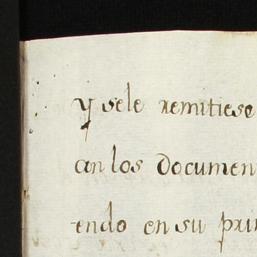 y sele remitiese
an los documen
endo en su prin